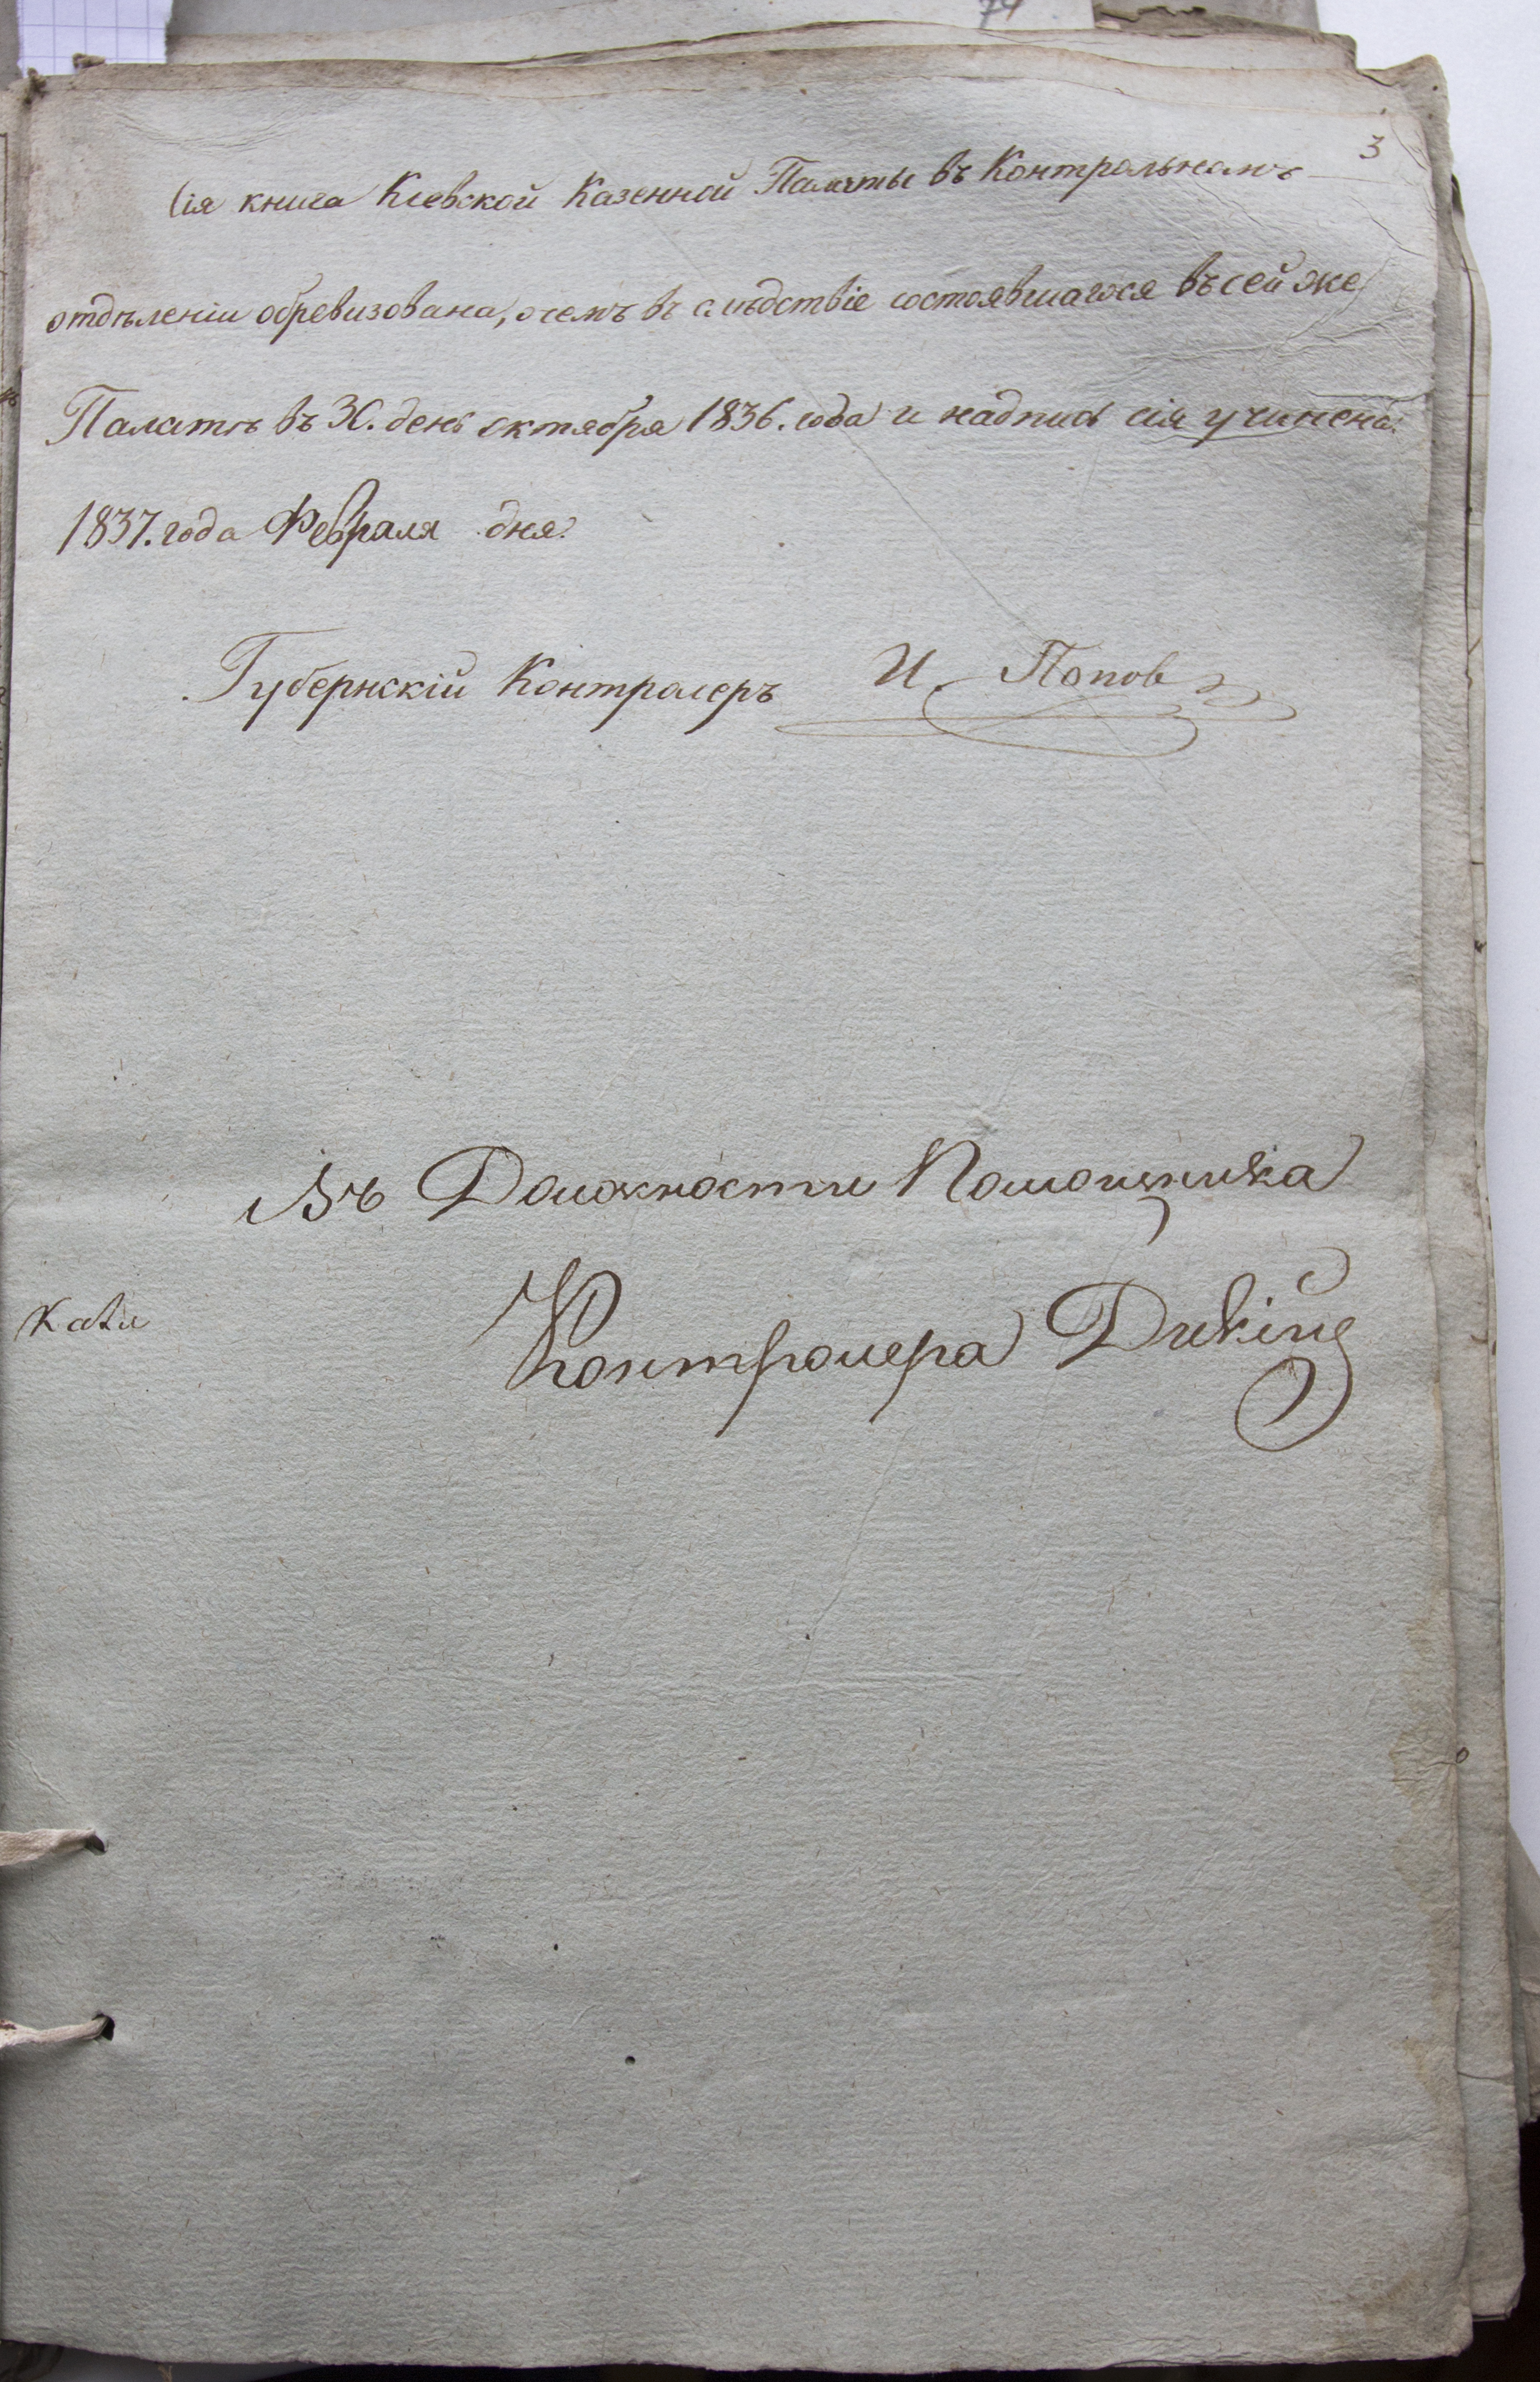 3
Сія книга Кіевской Казенной Палаты въ Контрольномъ
отдѣленіи обревизована, о чемъ въ слѣдствіе состоявшагося въ сей же
Палатѣ въ 30. день октября 1836. года и надпись сія учинена.
1837. года Февраля дня.
Губернскій Контролеръ И. Попов
Въ Должности Помощника
Контролера